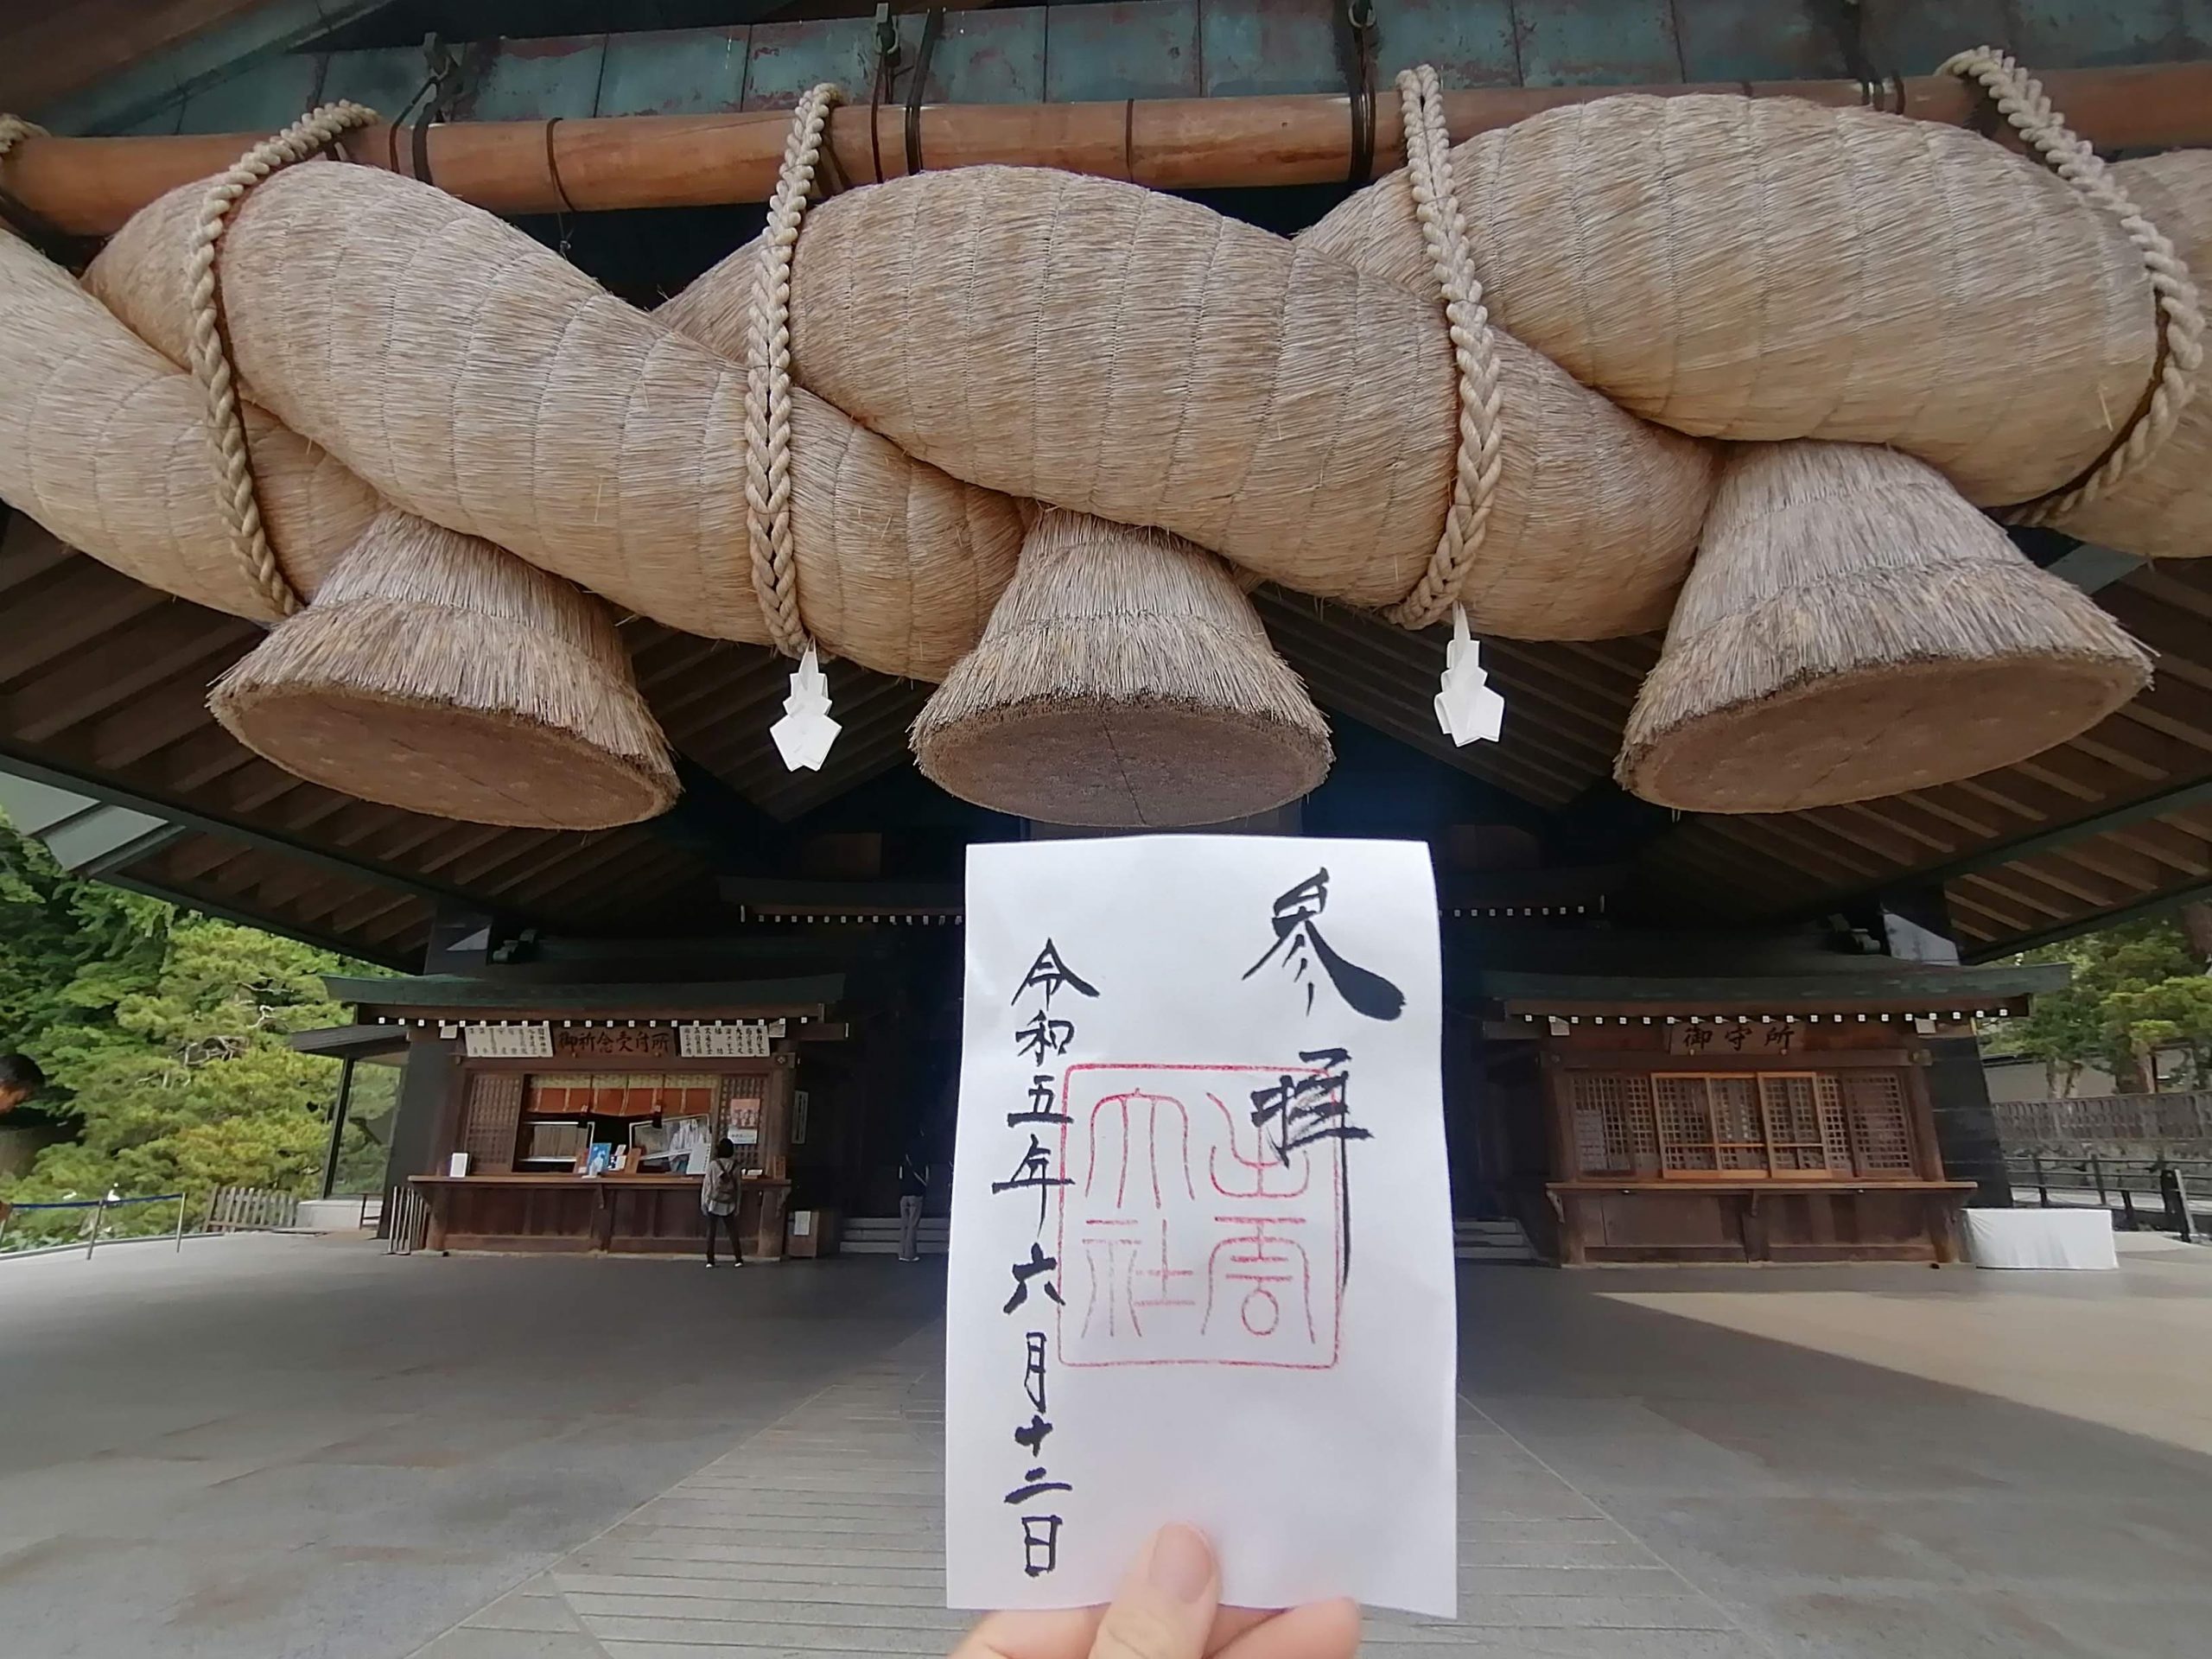 御祈念受付所
御守所
参拝
出雲
大社
令和五年六月十二日